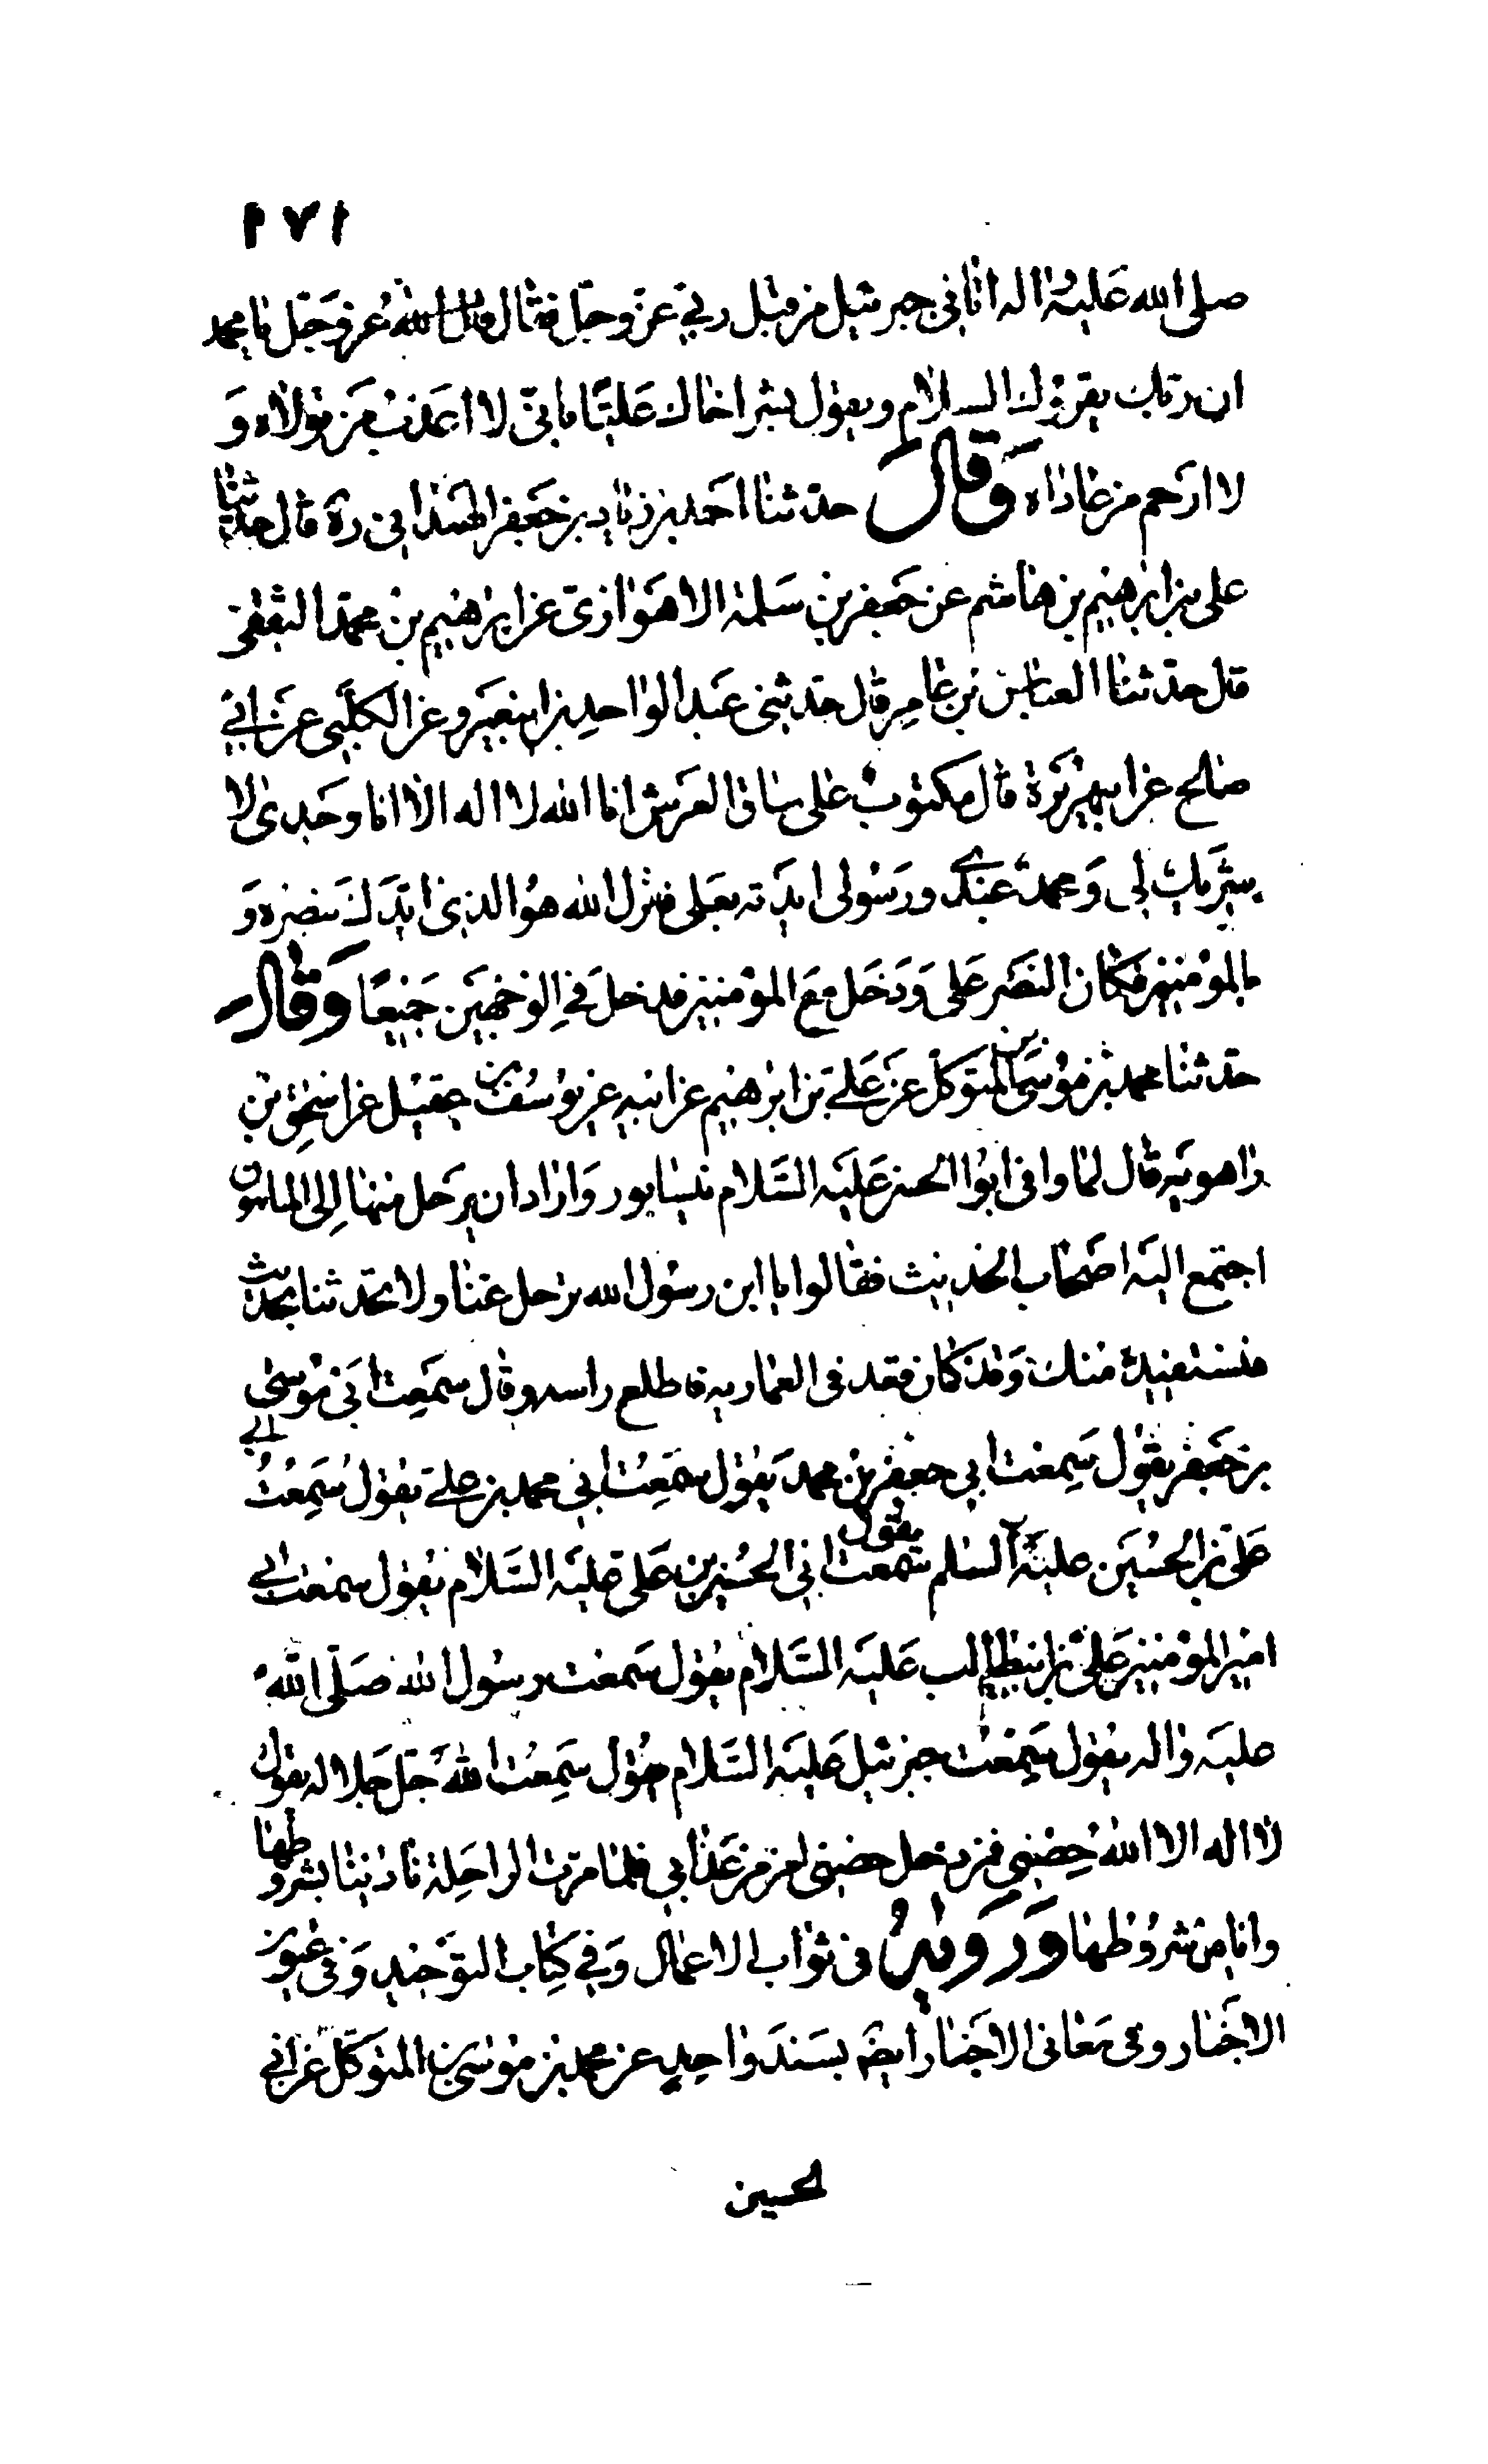 ١٧١
صلى الله عليه واله اتاني جبرئيل من قبل ربي عز وجل فقال قال الله عز وجل يا محمد
ان ربك يقرئك السلام ويقول بشر اخاك عليا باني لا اعذب من تولاه و
لا ارحم من عاداه وقال حدثنا احمد بن زياد بن جعفر الهمداني ره قال حدثنا
على بن ابرهيم بن هاشم عن جعفر بن سلمة الاهوازي عن ابرهيم بن محمد الثقفى
قل حدثنا العباس بن عامر قال حدثنى عبد الواحد بن ابيعمرو عن الكلبى عن ابي
صالح عن ابيهريرة قال مكتوب على ساق العرش انا الله لا اله الا انا وحدى لا
شريك لى ومحمد عبدي ورسولى ايدته بعلى فنزل الله هو الذي ايدك بنصره و
بالمؤمنين فكان النصر على ودخل مع المؤمنين فدخل في الوجهين جميعا وقال
حدثنا محمد بن موسى بن المتوكل عن علي بن ابرهيم عن ابيه عن يوسف بن عقيل عن اسحق بن
راهويه قال لما وافى ابو الحسن عليه السلام نيسابور واراد ان يرحل منها الى المامون
اجتمع اليه اصحاب الحديث فقالوا يا ابن رسول الله ترحل عنا ولا تحدثنا بحديث
فنستفيده منك وقد كان فقعد فى العمارية فاطلع راسه وقال سمعت ابى موسى
بن جعفر يقول سمعت ابي جعفر بن محمد يقول سمعت ابي محمد بن علي يقول سمعت ابي
على بن الحسين عليه السلم يقول سمعت ابي الحسين بن على عليه السلام يقول سمعت ابي
امير المؤمنين على بن ابيطالب عليه السلام يقول سمعت رسول الله صلى الله
عليه واله يقول سمعت جبرئيل عليه السلام يقول سمعت الله جل جلاله يقول
لا اله الا الله حصنى فمن دخل حصنى امن من عذابي فلما مرت الراحلة نادينا بشروطها
وانا من شروطها ورويه فى ثواب الاعمال وفي كتاب التوحيد وفى عيون
الاخبار وفى معانى الاخبار ايضا بسند واحد عن محمد بن موسى بن المتوكل عن ابي
لحسين